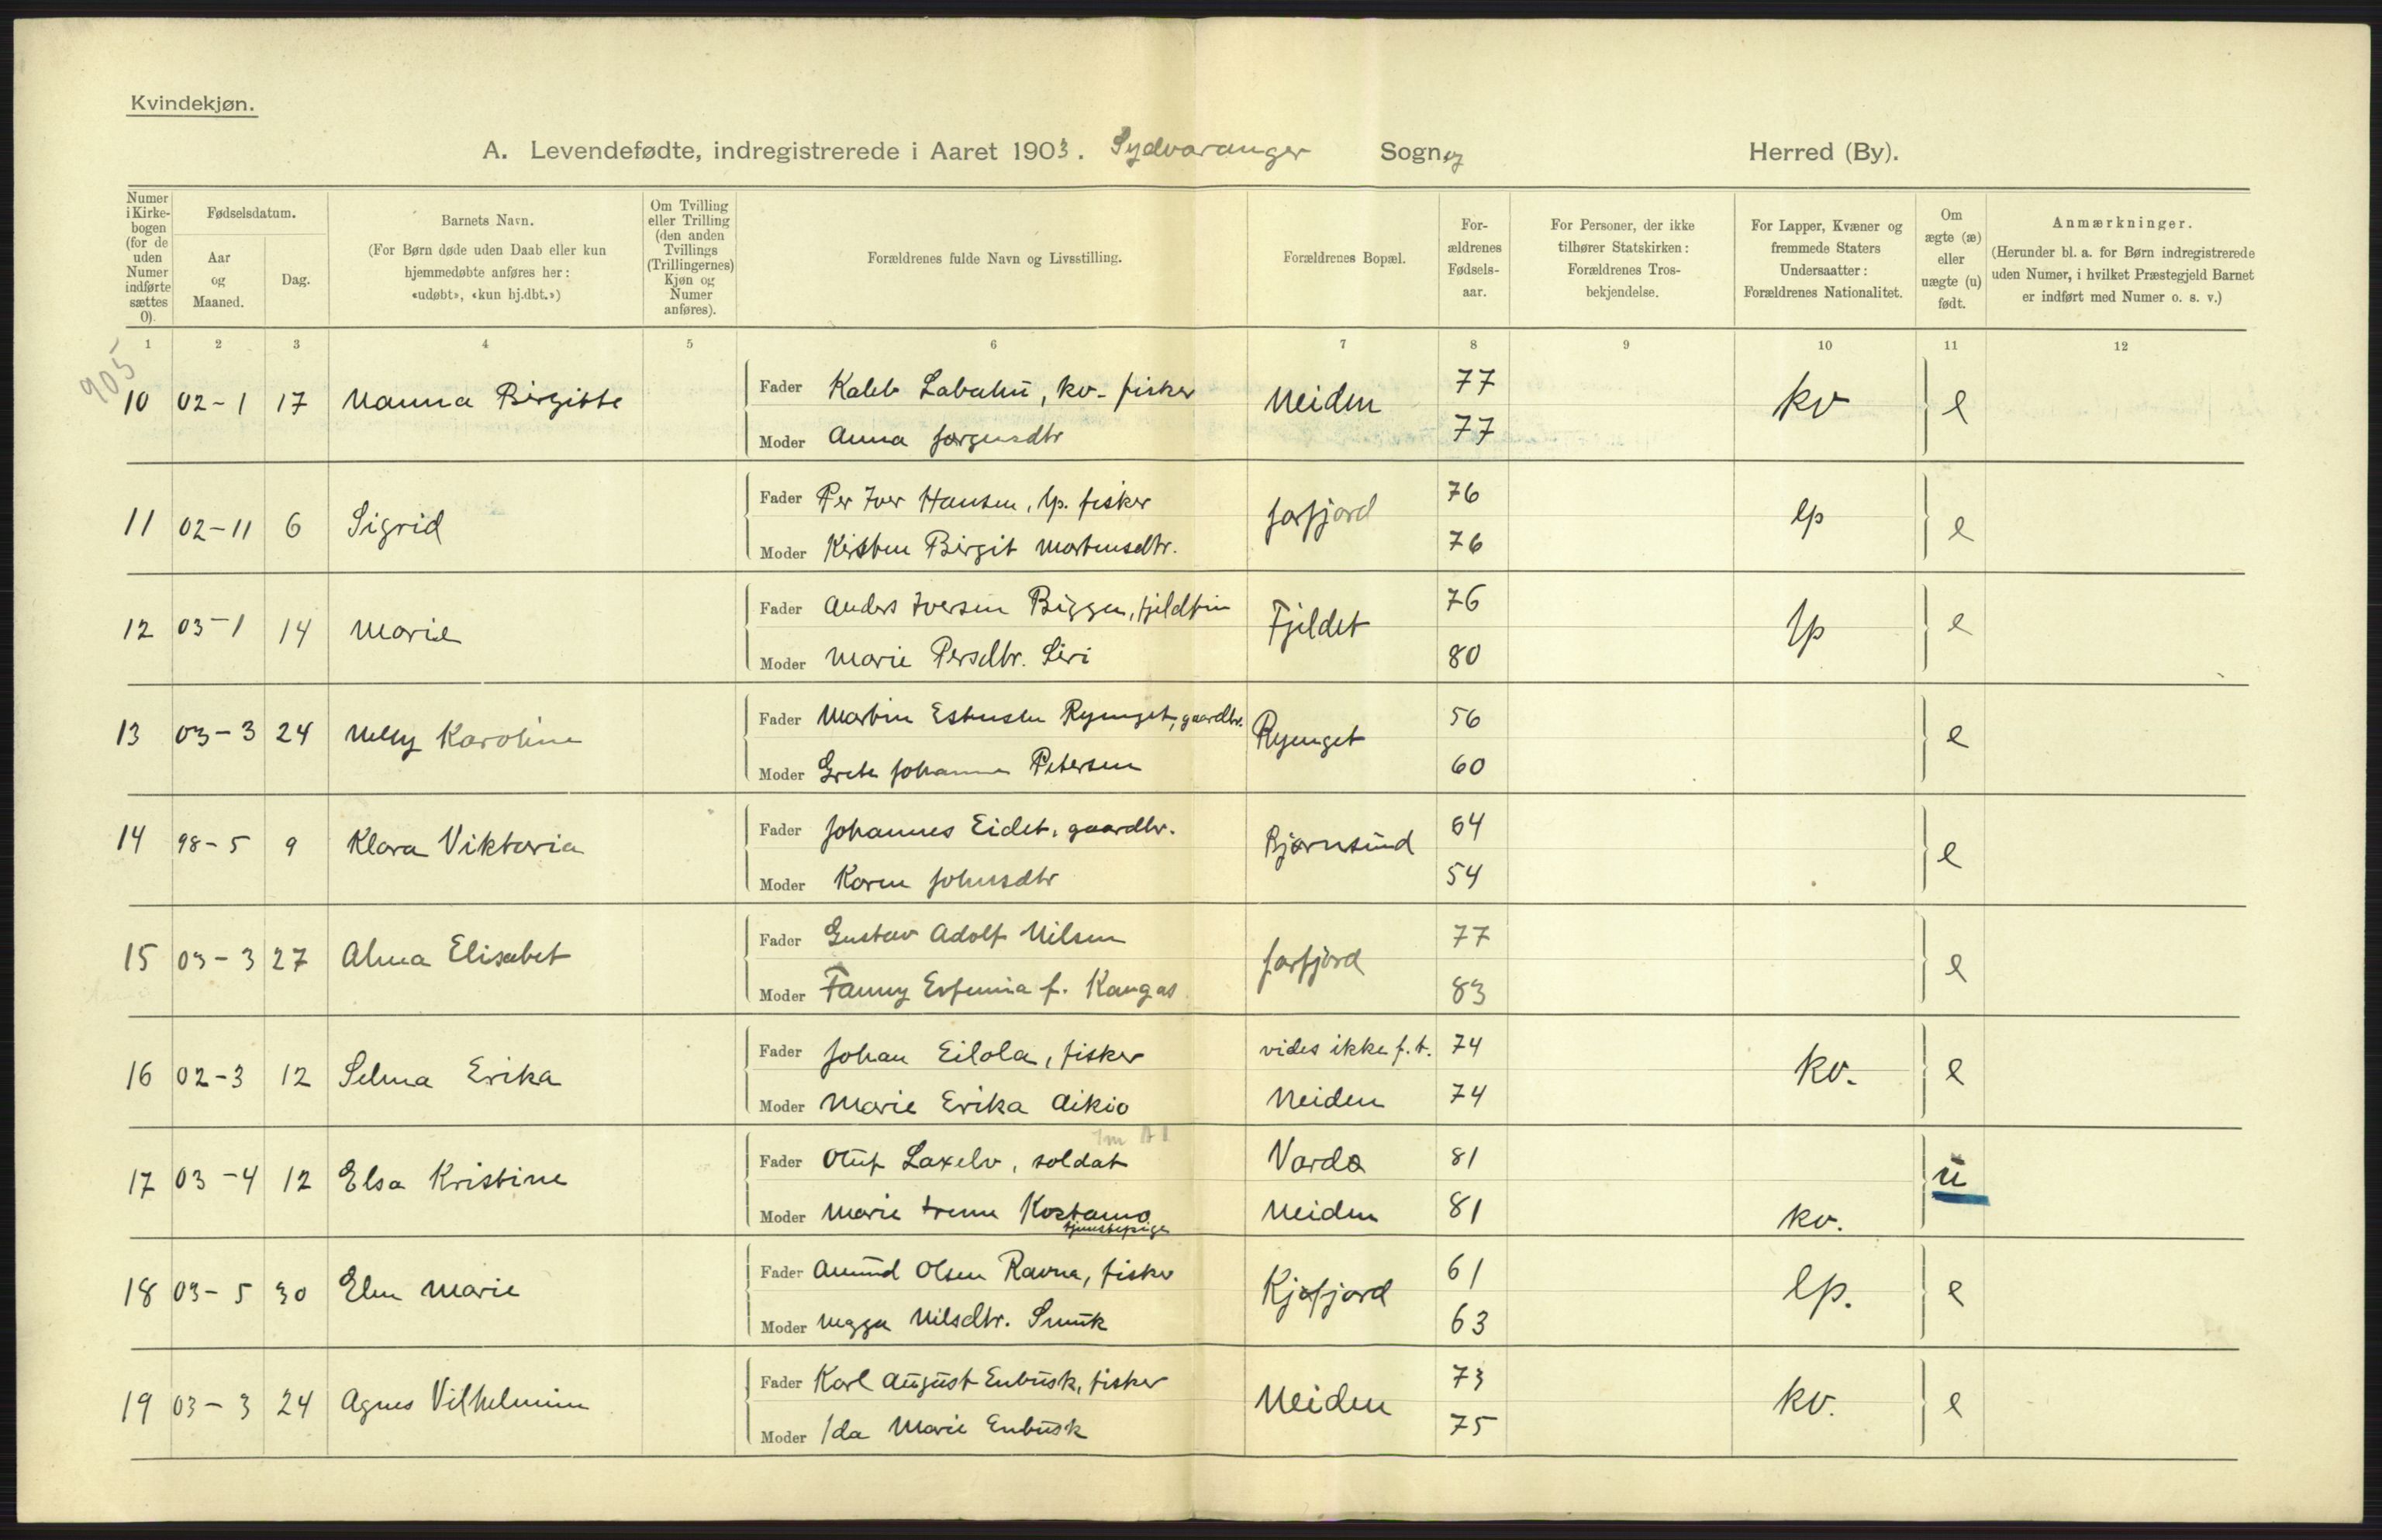 Kvindekjøn.
A. Levendefødte, indregistrerede i Aaret 1903. Sydvaranger Sogn og Herred (By).
Numer i Kirke-bogen (for de uden Numer indførte sættes 0).
Fødselsdatum.
Aar og Maaned.
Dag.
Barnets Navn.
(For Børn døde uden Daab eller kun hjemmedøbte anføres her: «udøbt», «kun hj.dbt.»)
Om Tvilling eller Trilling (den anden Tvillings (Trillingernes) Kjøn og Numer anføres).
Forældrenes fulde Navn og Livsstilling.
Forældrenes Bopæl.
For-ældrenes Fødsels-aar.
For Personer, der ikke tilhører Statskirken: Forældrenes Tros-bekjendelse.
For Lapper, Kvæner og fremmede Staters Undersaatter: Forældrenes Nationalitet.
Om ægte (æ) eller uægte (u) født.
Anmærkninger.
(Herunder bl. a. for Børn indregistrerede uden Numer, i hvilket Præstegjeld Barnet er indført med Numer o. s. v.)
1 2 3 4 5 6 7 8 9 10 11 12
905
10 02-1 17 Nanna Birgitte Fader Kaleb Labahü, kv. fisker Neiden 77 kv e
Moder Anna Jørgensdtr 77
11 02-11 6 Sigrid Fader Per Iver Hansen, lp. fisker Jarfjord 76 lp e
Moder Kirsten Birgit Mortensdtr. 76
12 03-1 14 Marie Fader Anders Iversen Bigge, fjeldfin Fjeldet 76 lp e
Moder Marie Persdtr. Siri 80
13 03-3 24 Nelly Karoline Fader Martin Estensen Ryenget, gaardbr. Ryenget 56 e
Moder Grete Johanne Petersen 60
14 98-5 9 Klara Viktoria Fader Johannes Eidet, gaardbr. Bjørnsünd 64 e
Moder Karen Johnsdtr 54
15 03-3 27 Alma Elisabet Fader Gustav Adolf Nilsen Jarfjord 77 e
Moder Fanny Eufemia f. Kangas 83
16 02-3 12 Selma Erika Fader Johan Eilola, fisker vides ikke f.t. 74 kv. e
Moder Marie Erika Aikio Neiden 74
17 03-4 12 Elsa Kristine Fader Olüf Laxelv, soldat Vardø 81 ü
Moder Marie Irene Kostamo tjenestepige Neiden 81 kv.
18 03-5 30 Elen Marie Fader Amünd Olsen Ravna, fisker Kjøfjord 61 lp. e
Moder Magga Nilsdtr. Smük 63
19 03-3 24 Agnes Vilhelmine Fader Karl Aügüst Enbüsk, fisker Neiden 73 kv. e
Moder Ida Marie Enbüsk 75